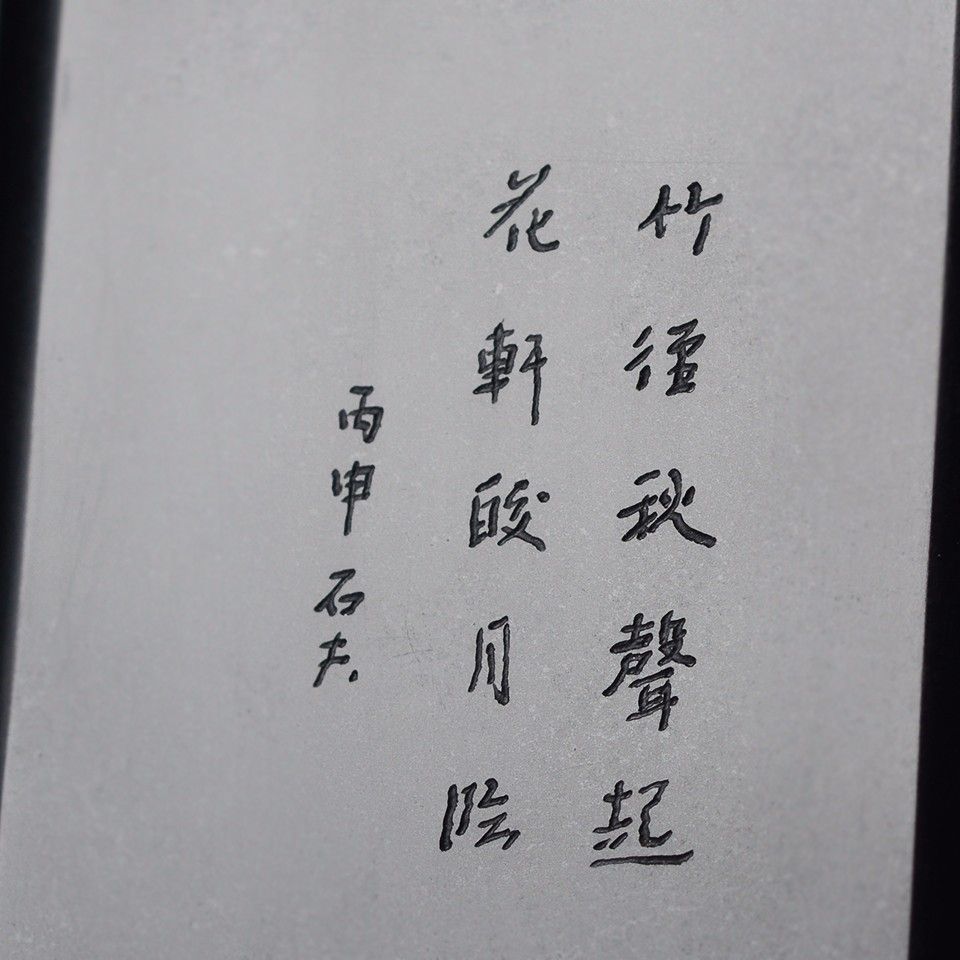 竹徑秋聲起
花軒皎月臨
丙申石夫